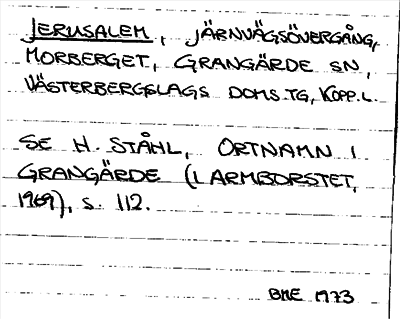 JERUSALEM, JÄRNVÄGSÖVERGÅNG,
MORBERGET, GRANGÄRDE SN,
VÄSTERBERGSLAGS DOMS.TG, KOPP.L.
SE H. STÅHL, ORTNAMN I
GRANGÄRDE (I ARMBORSTET,
1969), S. 112.
BME 1973